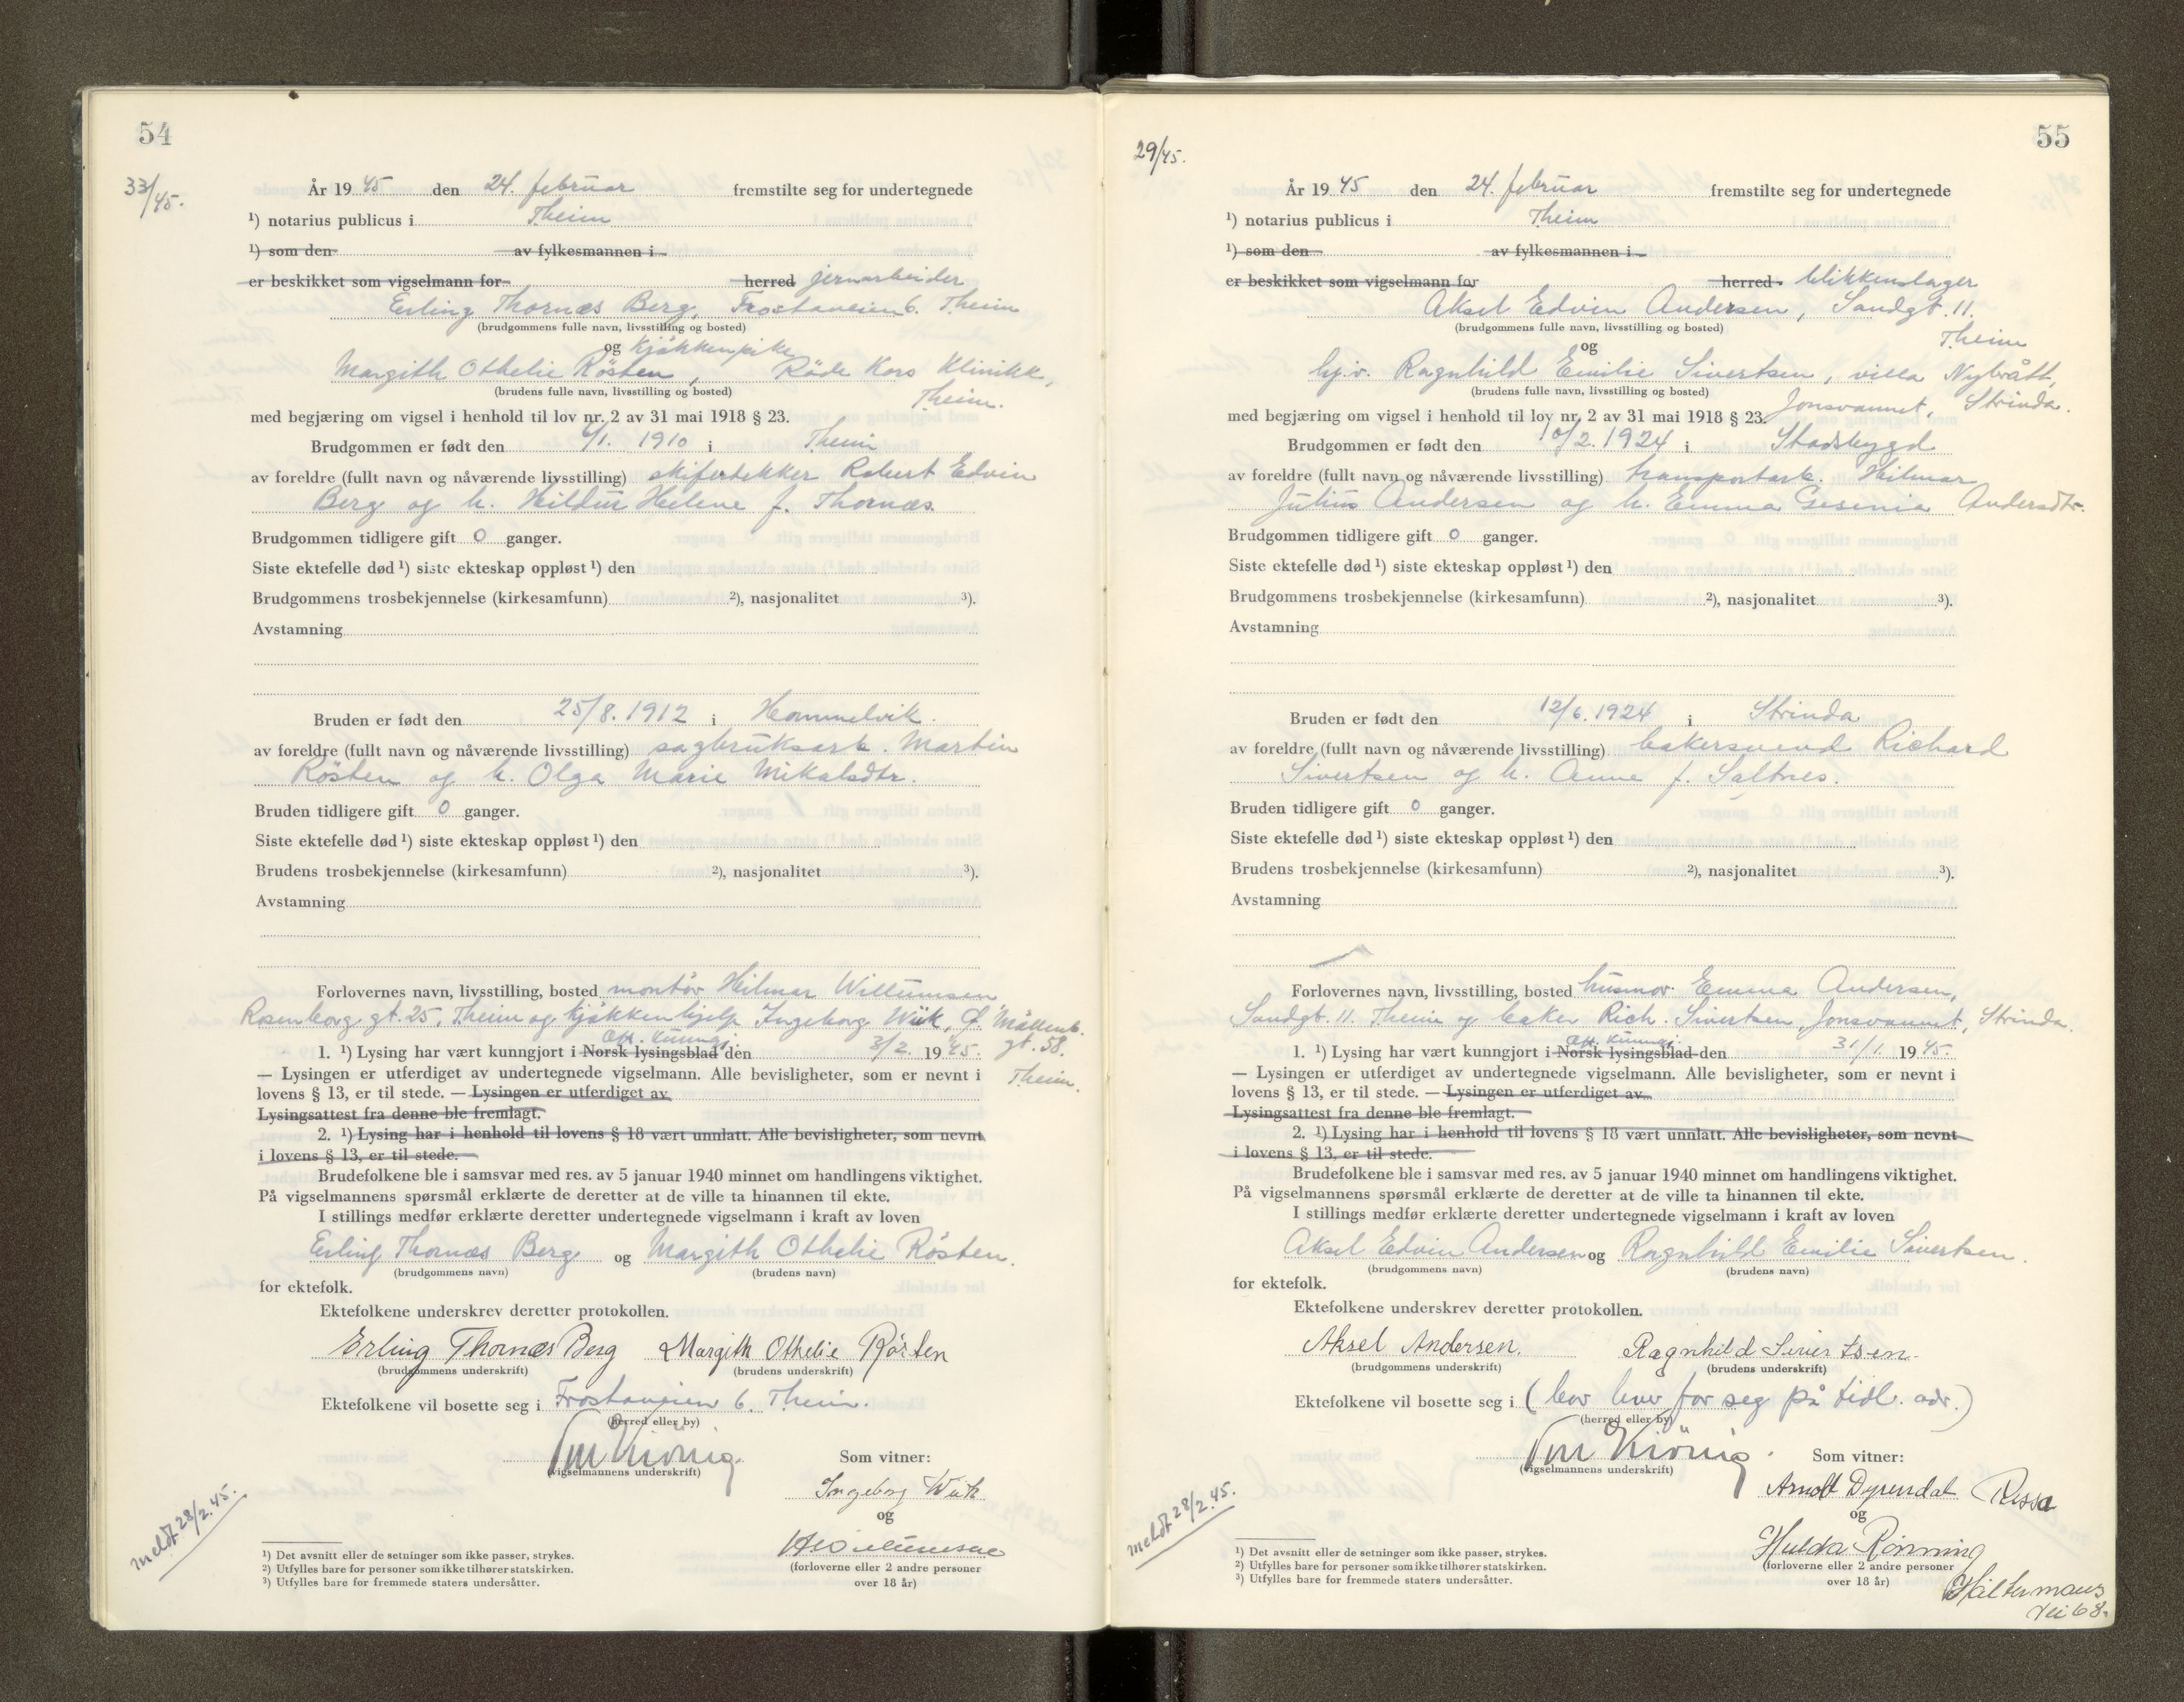 54
33/45.
År 1945 den 24. februar fremstilte seg for undertegnede
¹) notarius publicus i Theim
¹) som den av fylkesmannen i
er beskikket som vigselmann for herred jernarbeider
Erling Thornæs Berg, Frostaveien 6. Theim
(brudgommens fulle navn, livsstilling og bosted)
og kjøkkenpike
Margith Othelie Rösten, Røde Kors Klinikk,
(brudens fulle navn, livsstilling og bosted)
Theim.
med begjæring om vigsel i henhold til lov nr. 2 av 31 mai 1918 § 23.
Brudgommen er født den 6/1. 1910 i Theim
av foreldre (fullt navn og nåværende livsstilling) skifertekker Robert Edvin
Berg og h. Hildur Helene f. Thornæs
Brudgommen tidligere gift 0 ganger.
Siste ektefelle død ¹) siste ekteskap oppløst ¹) den
Brudgommens trosbekjennelse (kirkesamfunn) ²), nasjonalitet ³).
Avstamning
Bruden er født den 25/8. 1912 i Hommelvik.
av foreldre (fullt navn og nåværende livsstilling) sagbruksarb. Martin
Rösten og h. Olga Marie Mikalsdtr.
Bruden tidligere gift 0 ganger.
Siste ektefelle død ¹) siste ekteskap oppløst ¹) den
Brudens trosbekjennelse (kirkesamfunn) ²), nasjonalitet ³).
Avstamning
Forlovernes navn, livsstilling, bosted montør Hilmar Willumsen,
Rosenborg gt. 25, Theim og kjøkkenhjelp Ingeborg Wiik, Ø. Möllenb.
gt. 58.
Theim.
1. ¹) Lysing har vært kunngjort i Norsk lysingsblad Off. kunngj. den 3/2. 1945.
— Lysingen er utferdiget av undertegnede vigselmann. Alle bevisligheter, som er nevnt i
lovens § 13, er til stede. — Lysingen er utferdiget av
Lysingsattest fra denne ble fremlagt.
2. ¹) Lysing har i henhold til lovens § 18 vært unnlatt. Alle bevisligheter, som nevnt
i lovens § 13, er til stede.
Brudefolkene ble i samsvar med res. av 5 januar 1940 minnet om handlingens viktighet.
På vigselmannens spørsmål erklærte de deretter at de ville ta hinannen til ekte.
I stillings medfør erklærte deretter undertegnede vigselmann i kraft av loven
Erling Thornæs Berg og Margith Othelie Rösten.
(brudgommens navn) (brudens navn)
for ektefolk.
Ektefolkene underskrev deretter protokollen.
Erling Thornæs Berg Margith Othelie Rösten
(brudgommens underskrift) (brudens underskrift)
Ektefolkene vil bosette seg i Frostaveien 6. Theim.
(herred eller by)
(vigselmannens underskrift)
Som vitner:
Ingeborg Wiik
og
H Willumsen
(forloverne eller 2 andre personer
over 18 år)
meldt 28/2.45.
¹) Det avsnitt eller de setninger som ikke passer, strykes.
²) Utfylles bare for personer som ikke tilhører statskirken.
³) Utfylles bare for fremmede staters undersåtter.
55
29/45.
År 1945 den 24. februar fremstilte seg for undertegnede
¹) notarius publicus i Theim
¹) som den av fylkesmannen i
er beskikket som vigselmann for herred blikkenslager
Aksel Edvin Andersen, Sandgt. 11.
(brudgommens fulle navn, livsstilling og bosted)
Theim
og
hj.v. Ragnhild Emilie Sivertsen, villa Nybråth,
(brudens fulle navn, livsstilling og bosted)
Jonsvannet, Strinda.
med begjæring om vigsel i henhold til lov nr. 2 av 31 mai 1918 § 23.
Brudgommen er født den 10/2. 1924 i Stadsbygd
av foreldre (fullt navn og nåværende livsstilling) transportarb. Hilmar
Julius Andersen og h. Emma Gesenia Andersdtr.
Brudgommen tidligere gift 0 ganger.
Siste ektefelle død ¹) siste ekteskap oppløst ¹) den
Brudgommens trosbekjennelse (kirkesamfunn) ²), nasjonalitet ³).
Avstamning
Bruden er født den 12/6. 1924 i Strinda
av foreldre (fullt navn og nåværende livsstilling) bakersvend Richard
Sivertsen og h. Anne f. Saltnes.
Bruden tidligere gift 0 ganger.
Siste ektefelle død ¹) siste ekteskap oppløst ¹) den
Brudens trosbekjennelse (kirkesamfunn) ²), nasjonalitet ³).
Avstamning
Forlovernes navn, livsstilling, bosted husmor Emma Andersen,
Sandgt. 11. Theim og baker Rich. Sivertsen, Jonsvannet, Strinda.
1. ¹) Lysing har vært kunngjort i Norsk lysingsblad Off. kunngj. den 31/1. 1945.
— Lysingen er utferdiget av undertegnede vigselmann. Alle bevisligheter, som er nevnt i
lovens § 13, er til stede. — Lysingen er utferdiget av
Lysingsattest fra denne ble fremlagt.
2. ¹) Lysing har i henhold til lovens § 18 vært unnlatt. Alle bevisligheter, som nevnt
i lovens § 13, er til stede.
Brudefolkene ble i samsvar med res. av 5 januar 1940 minnet om handlingens viktighet.
På vigselmannens spørsmål erklærte de deretter at de ville ta hinannen til ekte.
I stillings medfør erklærte deretter undertegnede vigselmann i kraft av loven
Aksel Edvin Andersen og Ragnhild Emilie Sivertsen.
(brudgommens navn) (brudens navn)
for ektefolk.
Ektefolkene underskrev deretter protokollen.
Aksel Andersen. Ragnhild Sivertsen.
(brudgommens underskrift) (brudens underskrift)
Ektefolkene vil bosette seg i (bor hver for seg på tidl. adr.)
(herred eller by)
(vigselmannens underskrift)
Som vitner:
Arnolt Dyrendal Rissa
og
Hulda Rönning
(forloverne eller 2 andre personer
over 18 år)
vei 68.
meldt 28/2.45.
¹) Det avsnitt eller de setninger som ikke passer, strykes.
²) Utfylles bare for personer som ikke tilhører statskirken.
³) Utfylles bare for fremmede staters undersåtter.